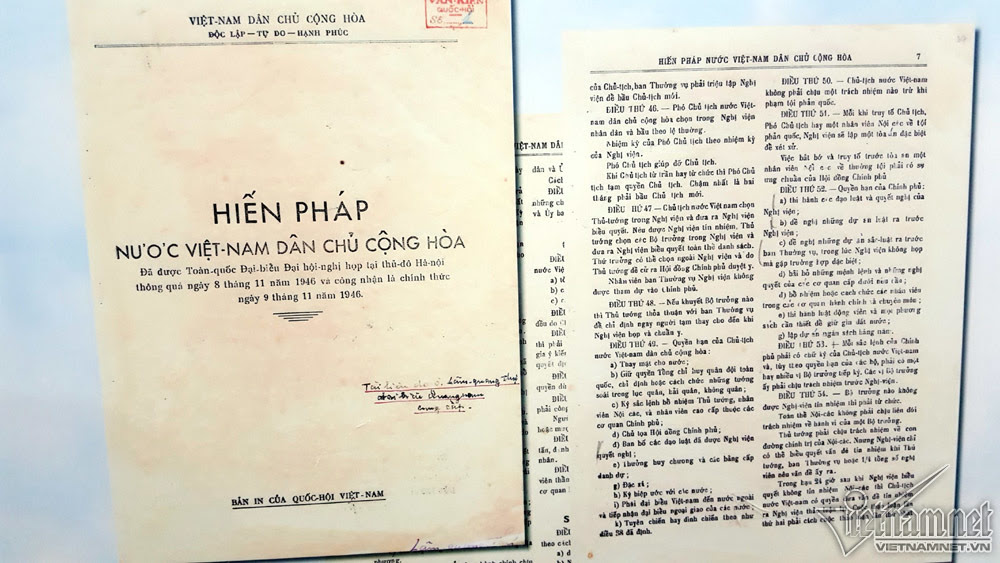 VIỆT-NAM DÂN CHỦ CỘNG HÒA
ĐỘC LẬP – TỰ DO – HẠNH PHÚC
VĂN-KIỆN
QUỐC-HỘI
HIẾN PHÁP
NƯỚC VIỆT-NAM DÂN CHỦ CỘNG HÒA
Đã được Toàn-quốc Đại-biểu Đại hội-nghị họp tại thủ-đô Hà-nội
thông quá ngày 8 tháng 11 năm 1946 và công nhận là chính thức
ngày 9 tháng 11 năm 1946.
Tài liệu do ô. Lâm-quang Thự
đại biểu Quảng nam
cung cấp.
BẢN IN CỦA QUỐC-HỘI VIỆT-NAM
HIẾN PHÁP NƯỚC VIỆT-NAM DÂN CHỦ CỘNG HÒA 7
của Chủ-tịch, ban Thường vụ phải triệu tập Nghị
viện để bầu Chủ-tịch mới.
ĐIỀU THỨ 46. – Phó Chủ-tịch nước Việt-
nam dân chủ cộng hòa chọn trong Nghị viện
nhân dân và bầu theo lệ thường.
Nhiệm kỳ của Phó Chủ-tịch theo nhiệm kỳ
của Nghị viện.
Phó Chủ-tịch giúp đỡ Chủ-tịch.
Khi Chủ-tịch từ trần hay từ chức thì Phó Chủ-
tịch tạm quyền Chủ tịch. Chậm nhất là hai
tháng phải bầu Chủ-tịch mới.
ĐIỀU THỨ 47 – Chủ-tịch nước Việt-nam chọn
Thủ-tướng trong Nghị viện và đưa ra Nghị viện
biểu quyết. Nếu được Nghị viện tín nhiệm, Thủ
tướng chọn các Bộ trưởng trong Nghị viện và
đưa ra Nghị viện biểu quyết toàn thể danh sách.
Thứ trưởng có thể chọn ngoài Nghị viện và do
Thủ tướng đề cử ra Hội đồng Chính phủ duyệt y.
Nhân viên ban Thường vụ Nghị viện không
được tham dự vào Chính phủ.
ĐIỀU THỨ 48. – Nếu khuyết Bộ trưởng nào
thì Thủ tướng thỏa thuận với ban Thường vụ
để chỉ định ngay người tạm thay cho đến khi
Nghị viện họp và chuẩn y.
ĐIỀU THỨ 49. – Quyền hạn của Chủ-tịch
nước Việt-nam dân chủ cộng hòa :
a) Thay mặt cho nước ;
b) Giữ quyền Tổng chỉ huy quân đội toàn
quốc, chỉ định hoặc cách chức những tướng
soái trong lục quân, hải quân, không quân ;
c) Ký sắc lệnh bổ nhiệm Thủ tướng, nhân
viên Nội các, và nhân viên cao cấp thuộc các
cơ quan Chính phủ ;
d) Chủ tọa Hội đồng Chính phủ ;
đ) Ban bố các đạo luật đã được Nghị viện
quyết nghị ;
e) Thưởng huy chương và các bằng cấp
danh dự ;
g) Đặc xá ;
h) Ký hiệp ước với các nước ;
i) Phái đại biểu Việt-nam đến nước ngoài
và tiếp nhận đại biểu ngoại giao của các nước ;
k) Tuyên chiến hay đình chiến theo như
điều 38 đã định.
ĐIỀU THỨ 50. – Chủ-tịch nước Việt-nam
không phải chịu một trách nhiệm nào trừ khi
phạm tội phản quốc.
ĐIỀU THỨ 51. – Mỗi khi truy tố Chủ-tịch,
Phó Chủ-tịch hay một nhân viên Nội các về tội
phản quốc, Nghị viện sẽ lập một tòa án đặc biệt
để xét xử.
Việc bắt bớ và truy tố trước tòa án một
nhân viên Nội các về thường tội phải có sự
ưng chuẩn của Hội đồng Chính phủ
ĐIỀU THỨ 52. – Quyền hạn của Chính phủ ;
a) thi hành các đạo luật và quyết nghị của
Nghị viện ;
b) đề nghị những dự án luật ra trước
Nghị viện ;
c) đề nghị những dự án sắc-luật ra trước
ban Thường vụ, trong lúc Nghị viện không họp
mà gặp trường hợp đặc biệt ;
d) bãi bỏ những mệnh lệnh và những nghị
quyết của các cơ quan cấp dưới nếu cần ;
đ) bổ nhiệm hoặc cách chức các nhân viên
trong các cơ quan hành chính và chuyên môn ;
e) thi hành luật động viên và mọi phương
sách cần thiết để giữ gìn đất nước ;
g) lập dự án ngân sách hàng năm.
ĐIỀU THỨ 53. – Mỗi sắc lệnh của Chính
phủ phải có chữ ký của Chủ-tịch nước Việt-nam
và, tùy theo quyền hạn của các bộ, phải có một
hay nhiều vị Bộ trưởng tiếp ký. Các vị Bộ trưởng
ấy phải chịu trách nhiệm trước Nghị viện.
ĐIỀU THỨ 54. – Bộ trưởng nào không
được Nghị viện tín nhiệm thì phải từ chức.
Toàn thể Nội-các không phải chịu liên đới
trách nhiệm về hành vi của một Bộ trưởng.
Thủ tướng phải chịu trách nhiệm về con
đường chính trị của Nội-các. Nhưng Nghị-viện chỉ
có thể biểu quyết vấn đề tín nhiệm khi Thủ
tướng, ban Thường vụ hoặc 1/4 tổng số nghị
viên nêu vấn đề ấy ra.
Trong hạn 24 giờ sau khi Nghị viện biểu
quyết không tín nhiệm Nội-các thì Chủ-tịch
nước Việt-nam có quyền
ra Nghị viện
thứ hai phải cách cuộc
Vietnam.net
VIETNAMNET.VN